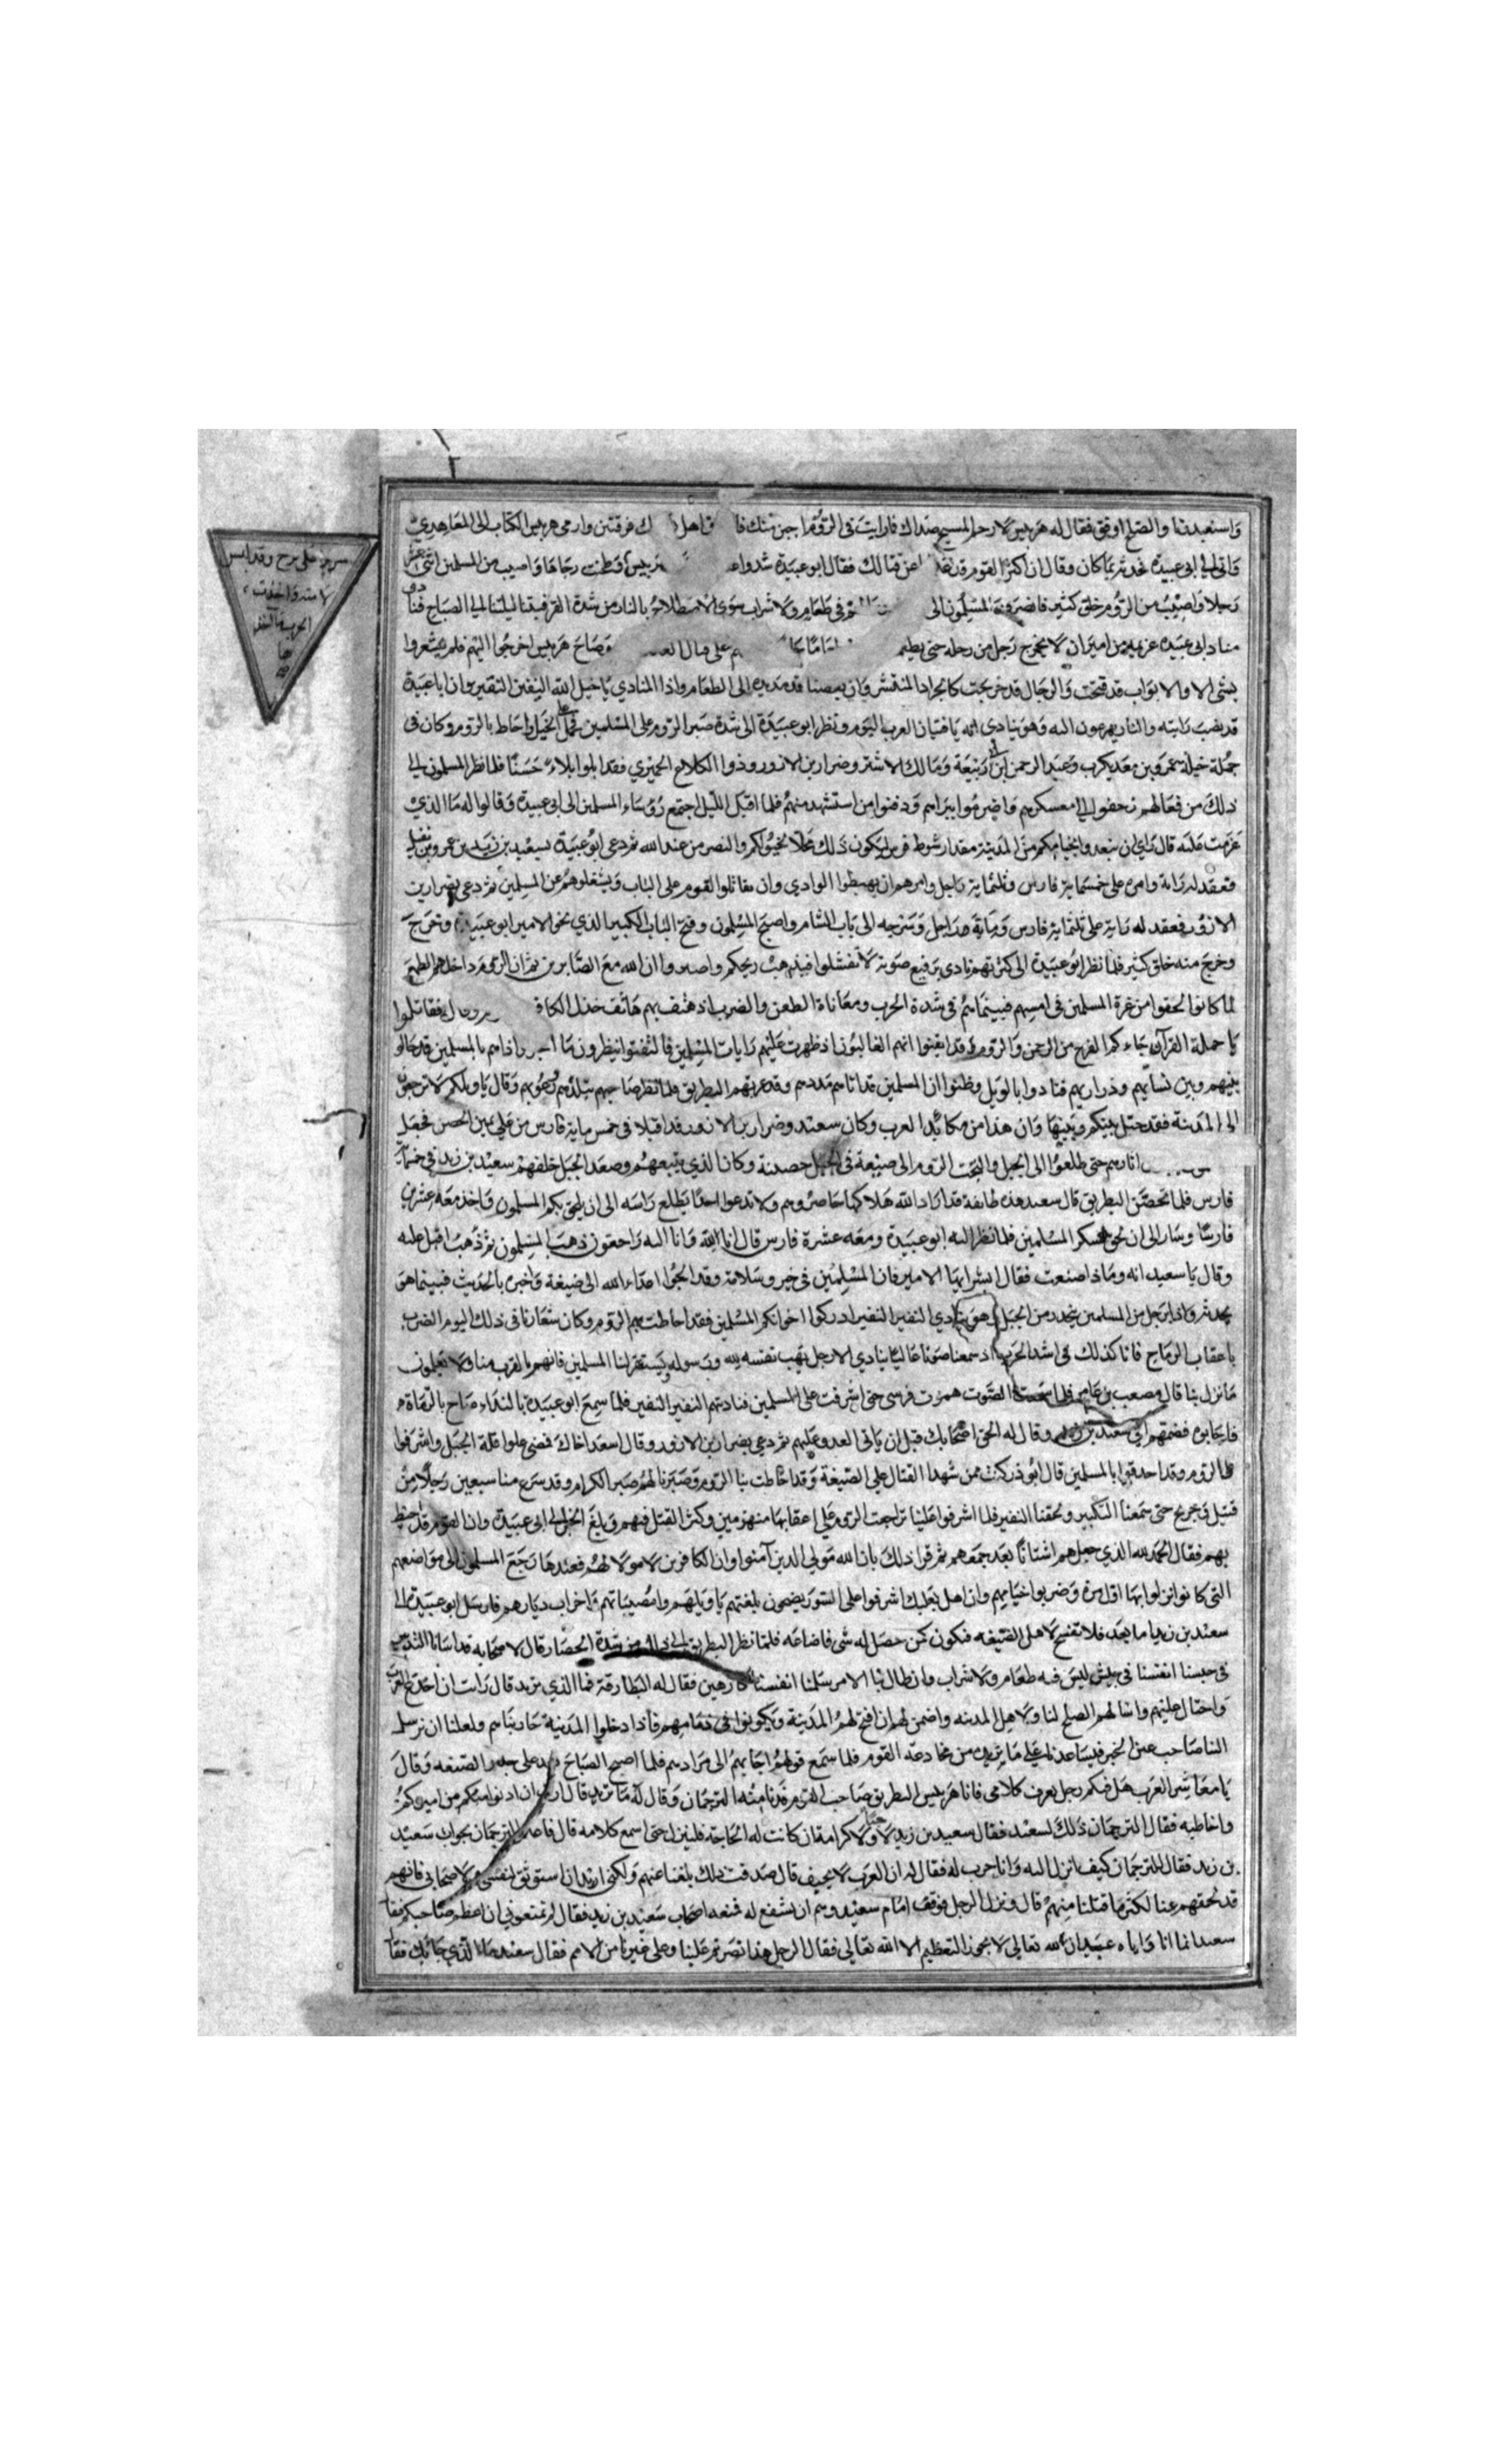 واستعبدنا والصلح اوفق فقال له هربيس لا رحم المسيح صداك فما رايت في الروم اجبن منك وارمى هربيس الكتاب الى المعاهدي
فاتى الى ابي عبيدة فحدثه بما كان وقال ان اكثر القوم عن قتالك فقال ابو عبيدة شدوا رجالها واصيب من المسلمين اثنى عشر
رجلا واصيب من الروم خلق كثير فانصرف المسلمون الى في طعام ولا شراب سوى الاصطلاء بالنار من شدة القر فبقينا ليلتنا الى الصباح فنادى
مناد ابي عبيدة عزيمة من امير ان لا يخرج رجل من رحله حتى على قتال وصاح هربيس اخرجوا اليهم فلم يشعروا
بشي الا والابواب قد فتحت والرجال قد خرجت كالجراد المنتشر وان بعضنا قد مد يده الى الطعام واذا المنادي يا خيل الله النفير النفير وان ابا عبيدة
قد نصب رايته والناس يهرعون اليه وهو ينادي يا فتيان العرب اليوم ونظر ابو عبيدة الى شدة صبر الروم على المسلمين فحمل على الخيل واحاط بالروم وكان في
جملة خيله عمرو بن معديكرب وعبد الرحمن ابن ربيعة ومالك الاشتر وضرار بن الازور وذوا الكلاع الحميري فقد ابلوا بلاء حسنا فلما نظر المسلمون الى
ذلك من فعالهم زحفوا الى معسكرهم واضرموا نيرانهم ودفنوا من استشهد منهم فلما اقبل الليل اجتمع رؤساء المسلمين الى ابي عبيدة وقالوا له ما الذي
عزمت عليه قال راي ان نبعد بخيامكم من المدينة مقدار شوط فرس ليكون ذلك مجالا لخيولكم والنصر من عند الله ثم دعى ابو عبيدة بسعيد بن زيد بن عمرو بن نفيل
فعقد له راية وامره على خمسماية فارس وثلثماية راجل وامرهم ان يهبطوا الوادي وان يقاتلوا القوم على الباب ويشغلوهم عن المسلمين ثم دعى بضرار بن
الازور فعقد له راية على ثلثماية فارس وماية راجل وسرحه الى باب الشام واصبح المسلمون وفتح الباب الكبير الذي نحو الامير ابو عبيدة وخرج
وخرج منه خلق كثير فلما نظر ابو عبيدة الى كثرتهم نادى برفيع صوته لا تفشلوا فيذهب ريحكم واصبروا ان الله مع الصابرين ثم ان الروم داخلهم الطمع
لما كانوا لحقوا من غرة المسلمين في امسهم فبينما هم في شدة الحرب ومعاناة الطعن والضرب اذ هتف بهم هاتف خذل الكافر فقاتلوا
يا حملة القران جاءكم الفرج من الرحمن والروم قد ايقنوا انهم الغالبون اذ ظهرت عليهم رايات المسلمين فالتفتوا ينظرون ما اذا هم بالمسلمين قد حالوا
بينهم وبين نسايهم وذراريهم فنادوا بالويل وظنوا ان المسلمين قد اتاهم مددهم وقد غربهم البطريق فلما نظر صاحبهم تبلدهم وقال يا ويلكم لا ترجعون
الى المدينة فقد حيل بينكم وبينها وان هذا من مكايد العرب وكان سعيد وضرار بن الازور قد اقبلا في خمس ماية فارس من على يمين الحصن فجعل
اثارهم حتى طلعوا الى الجبل والتجت الروم الى ضيعة في الجبل حصينة وكان الذي يتبعهم وصعد الجبل خلفهم سعيد بن زيد في خمسماية
فارس فلما تحصن البطريق قال سعيد هذه طائفة قد اراد الله هلاكها حاصروهم ولا تدعوا احدا يطلع راسه الى ان يلحق بكم المسلمون واخذ معه عشرين
فارسا وسار الى ان لحق عسكر المسلمين فلما نظر اليه ابو عبيدة ومعه عشرة فارس قال انا لله وانا اليه راجعون ذهب المسلمون ثم ذهب اقبل عليه
وقال يا سعيد انه وماذا صنعت فقال ابشر ايها الامير فان المسلمين في خير وسلامة وقد الجوا اعداء الله الى ضيعة واخبره بالحديث فبينما هو
يحدثه واذا برجل من المسلمين ينحدر من الجبل وهو ينادي النفير النفير ادركوا اخوانكم المسلمين فقد احاطت بهم الروم وكان شعارنا في ذلك اليوم الضرب
باعقاب الرماح فانا كذلك في اشد الحرب اذ سمعنا صوتا عاليا ينادي الا رجل يهب نفسه لله ورسوله ويستنفر لنا المسلمين فانهم بالقرب منا ولا يعلمون
ما نزل بنا قال مصعب بن عامر فلما سمعت الصوت همزت فرسي حتى اشرفت على المسلمين فناديتهم النفير النفير فلما سمع ابو عبيدة بالنداء صاح بالرماة
فاجابوه فضمهم الى سعيد بن زيد وقال له الحق اصحابك قبل ان ياتي العدو عليهم ثم دعى بضرار بن الازور وقال اسعد اخاك فمضى علوا قلة الجبل واشرفوا
على الروم وقد احدقوا بالمسلمين قال ابو ذر كنت ممن شهد القتال على الضيعة وقد احاطت بنا الروم وصبرنا لهم صبر الكرام وقد سرع منا سبعين رجلا من
قتيل وجريح حتى سمعنا التكبير ولحقنا النفير فلما اشرفوا علينا تراجعت الروم على اعقابها منهزمين وكثر القتل فيهم وبلغ الخبر الى ابي عبيدة وان القوم قد احيط
بهم فقال الحمد لله الذي جعلهم اشتاتا بعد جمعهم ثم قرا ذلك بان الله مولى الذين آمنوا وان الكافرين لا مولا لهم فعندها رجع المسلمون الى مواضعهم
التي كانوا نزلوا بها اول مرة وضربوا خيامهم وان اهل بعلبك اشرفوا على السور يضجون بلغتهم يا ويلهم وامصيباتهم واخراب ديارهم فارسل ابو عبيدة الى
سعيد بن زيد اما بعد فلا تفسح لاهل الضيعه فتكون كمن حصل له شي فاضاعه فلما نظر البطريق الى ذلك من شدة الحصار قال لاصحابه قد اسانا التدبير
في حبسنا انفسنا في ليس فيه طعام ولا شراب وان طال بنا الامر سلمنا انفسنا كارهين فقال له البطارقة فما الذي تريد قال رايت ان اخدع العرب
واحتال عليهم واسالهم الصلح لنا ولاهل المدينه واضمن لهم ان افتح لهم المدينة ويكونوا في ذمامهم فاذا دخلوا المدينة حاربناهم ولعلنا ان نرسل
الى صاحب عين الجر فيساعدنا على ما نريد من مخادعة القوم فلما سمع قولهم اجابهم الى مرادهم فلما اصبح الصباح على جدار الضيعه وقال
يا معاشر العرب هل فيكم رجل يعرف كلامي فانا هربيس البطريق صاحب القوم فدنا منه الترجمان وقال له ما تريد قال اريد ان ادنوا منكم من اميركم
واخاطبه فقال الترجمان ذلك لسعيد فقال سعيد بن زيد لا حبا ولا كرامة ان كانت له الحاجة فلينزل حتى اسمع كلامه قال فاعلمه الترجمان بجواب سعيد
بن زيد فقال للترجمان كيف انزل اليه وانا حرب له فقال له ان العرب لا يحيف قال صدقت ذلك بلغنا عنهم ولكني اريد ان استوثق لنفسي ولاصحابي فانهم
قد لحقهم عنا لكثرة ما قتلنا منهم قال ونزل الرجل فوقف امام سعيد وهم ان يشفع له فمنعه اصحاب سعيد بن زيد فقال لم تمنعوني ان اعظم صاحبكم فقال
سعيد انما انا واياه عبيدان لله تعالى لا يجوز التعظيم الا الله تعالى فقال الرجل هذا نصرتم علينا وعلى غيرنا من الامم فقال سعيد ما الذي جاء بك فقال